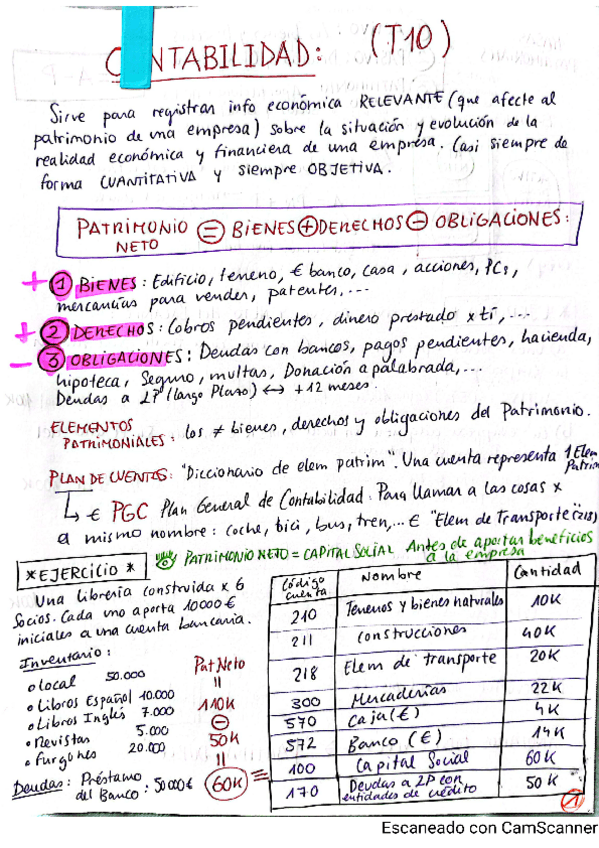 CONTABILIDAD: (T10)
Sirve para registrar info económica RELEVANTE (que afecte al
patrimonio de una empresa) sobre la situación y evolución de la
realidad económica y financiera de una empresa. Casi siempre de
forma CUANTITATIVA y siempre OBJETIVA.
PATRIMONIO NETO = BIENES + DERECHOS - OBLIGACIONES:
+ 1 BIENES: Edificio, terreno, € banco, casa, acciones, PCs,
mercancías para vender, patentes,...
+ 2 DERECHOS: Cobros pendientes, dinero prestado x ti,...
- 3 OBLIGACIONES: Deudas con bancos, pagos pendientes, hacienda,
hipoteca, Seguro, multas, Donación apalabrada,...
Deudas a LP (largo Plazo) ↔ +12 meses.
ELEMENTOS
PATRIMONIALES: los ≠ bienes, derechos y obligaciones del Patrimonio.
PLAN DE CUENTAS: "Diccionario de elem patrim". Una cuenta representa 1 Elem
Patrim
↳ € PGC Plan General de Contabilidad. Para llamar a las cosas x
a mismo nombre: coche, bici, bus, tren,... € "Elem de Transporte" (218)
PATRIMONIO NETO = CAPITAL SOCIAL Antes de aportar beneficios
a la empresa
*EJERCICIO*
Una librería construida x 6
socios. Cada uno aporta 10000€
iniciales a una cuenta bancaria.
Inventario:
o local 50.000
o Libros Español 10.000
o Libros Inglés 7.000
o Revistas 5.000
o Furgones 20.000
Deudas: Préstamo
del Banco: 50000€
Pat Neto
=
110K
-
50K
=
60K =
Código cuenta Nombre Cantidad
210 Terrenos y bienes naturales 10K
211 Construcciones 40K
218 Elem de transporte 20K
300 Mercaderías 22K
570 Caja (€) 4K
572 Banco (€) 14K
100 Capital Social 60K
170 Deudas a LP con entidades de crédito 50K
1
Escaneado con CamScanner